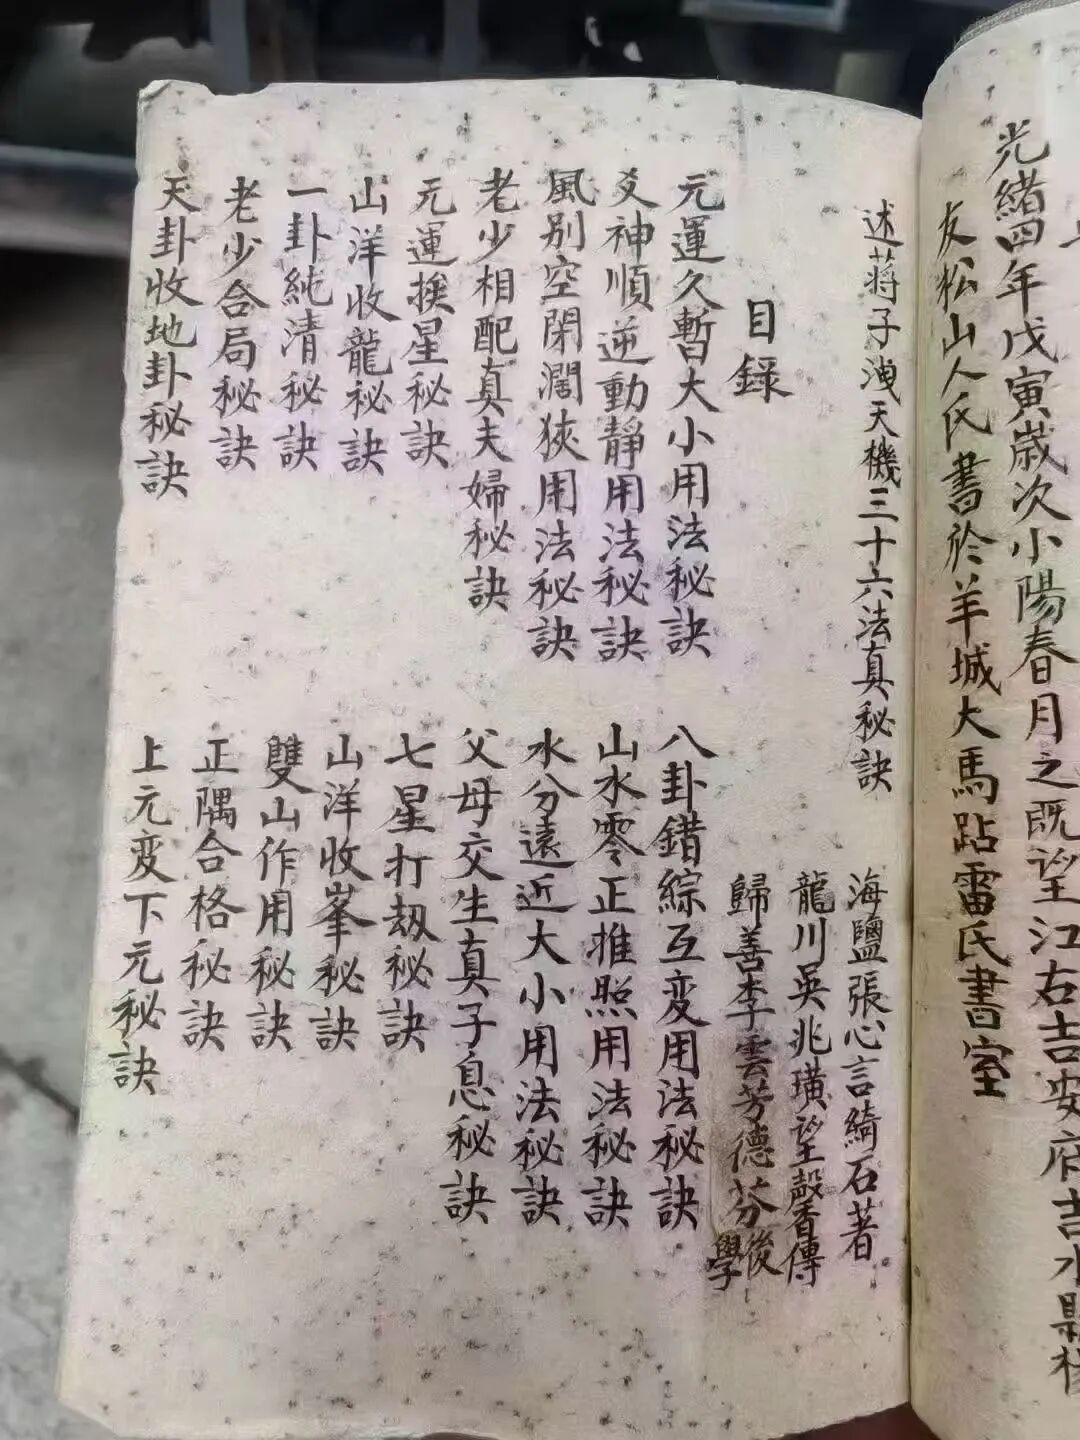 光緒四年戊寅歲次小陽春月之既望江右吉安府吉水縣楊
友松山人氏書於羊城大馬跕雷氏書室
述蔣子洩天機三十六法真秘訣
海鹽張心言綺石著
龍川吳兆璜望馨香傳
歸善李雲芳德芬後學
目錄
元運久暫大小用法秘訣
八卦錯綜互変用法秘訣
爻神順逆動靜用法秘訣
山水零正推照用法秘訣
風別空閑濶狹用法秘訣
水分遠近大小用法秘訣
老少相配真夫婦秘訣
父母交生真子息秘訣
元運挨星秘訣
七星打刼秘訣
山洋收龍秘訣
山洋收峯秘訣
一卦純清秘訣
雙山作用秘訣
老少合局秘訣
正隅合格秘訣
天卦收地卦秘訣
上元变下元秘訣